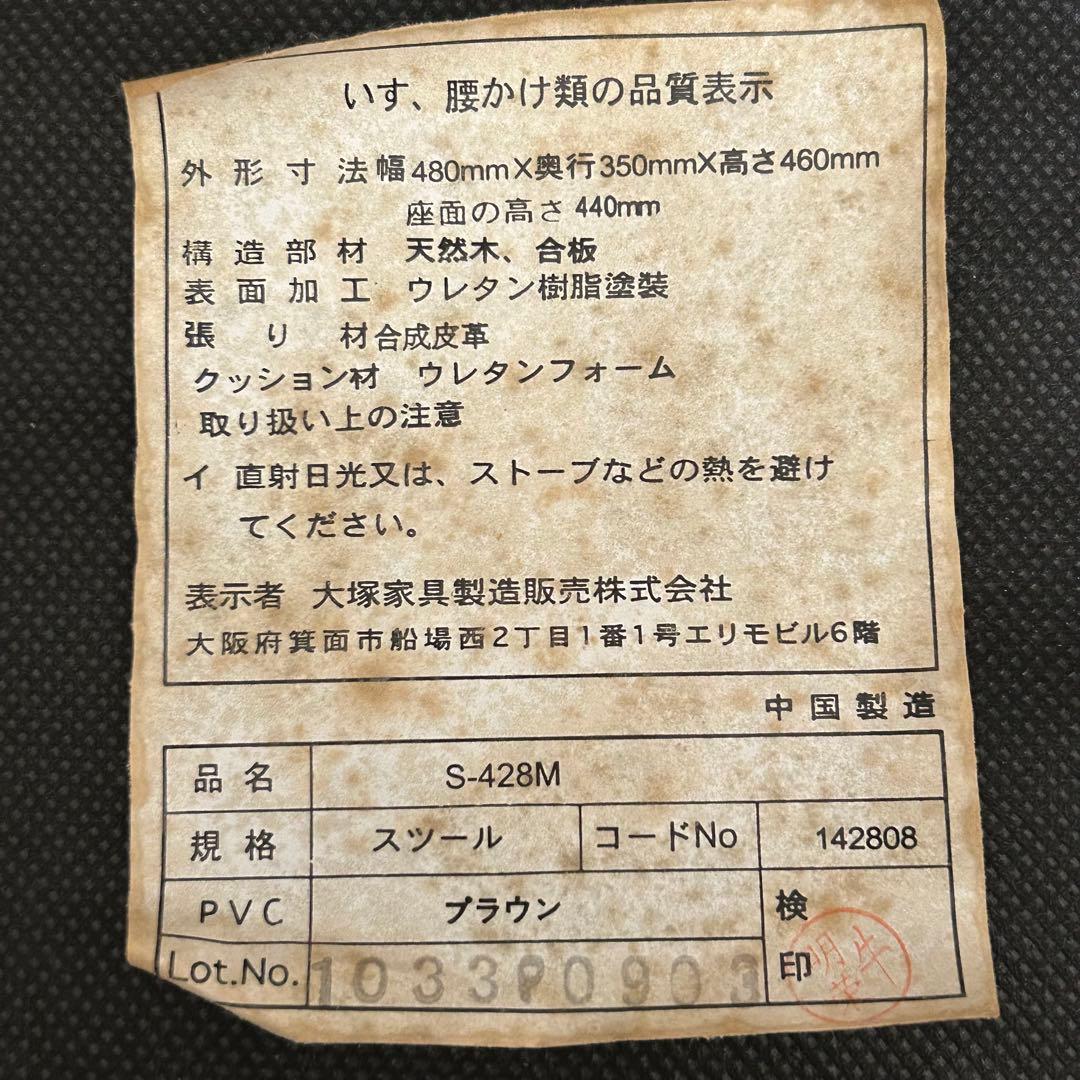 いす、腰かけ類の品質表示
外形寸法 幅480mmX奥行350mmX高さ460mm
座面の高さ 440mm
構造部材 天然木、合板
表面加工 ウレタン樹脂塗装
張り材 合成皮革
クッション材 ウレタンフォーム
取り扱い上の注意
イ 直射日光又は、ストーブなどの熱を避け
てください。
表示者 大塚家具製造販売株式会社
大阪府箕面市船場西2丁目1番1号エリモビル6階
中国製造
品名 S-428M
規格 スツール コードNo 142808
PVC ブラウン 検印
Lot.No. 1033P0903